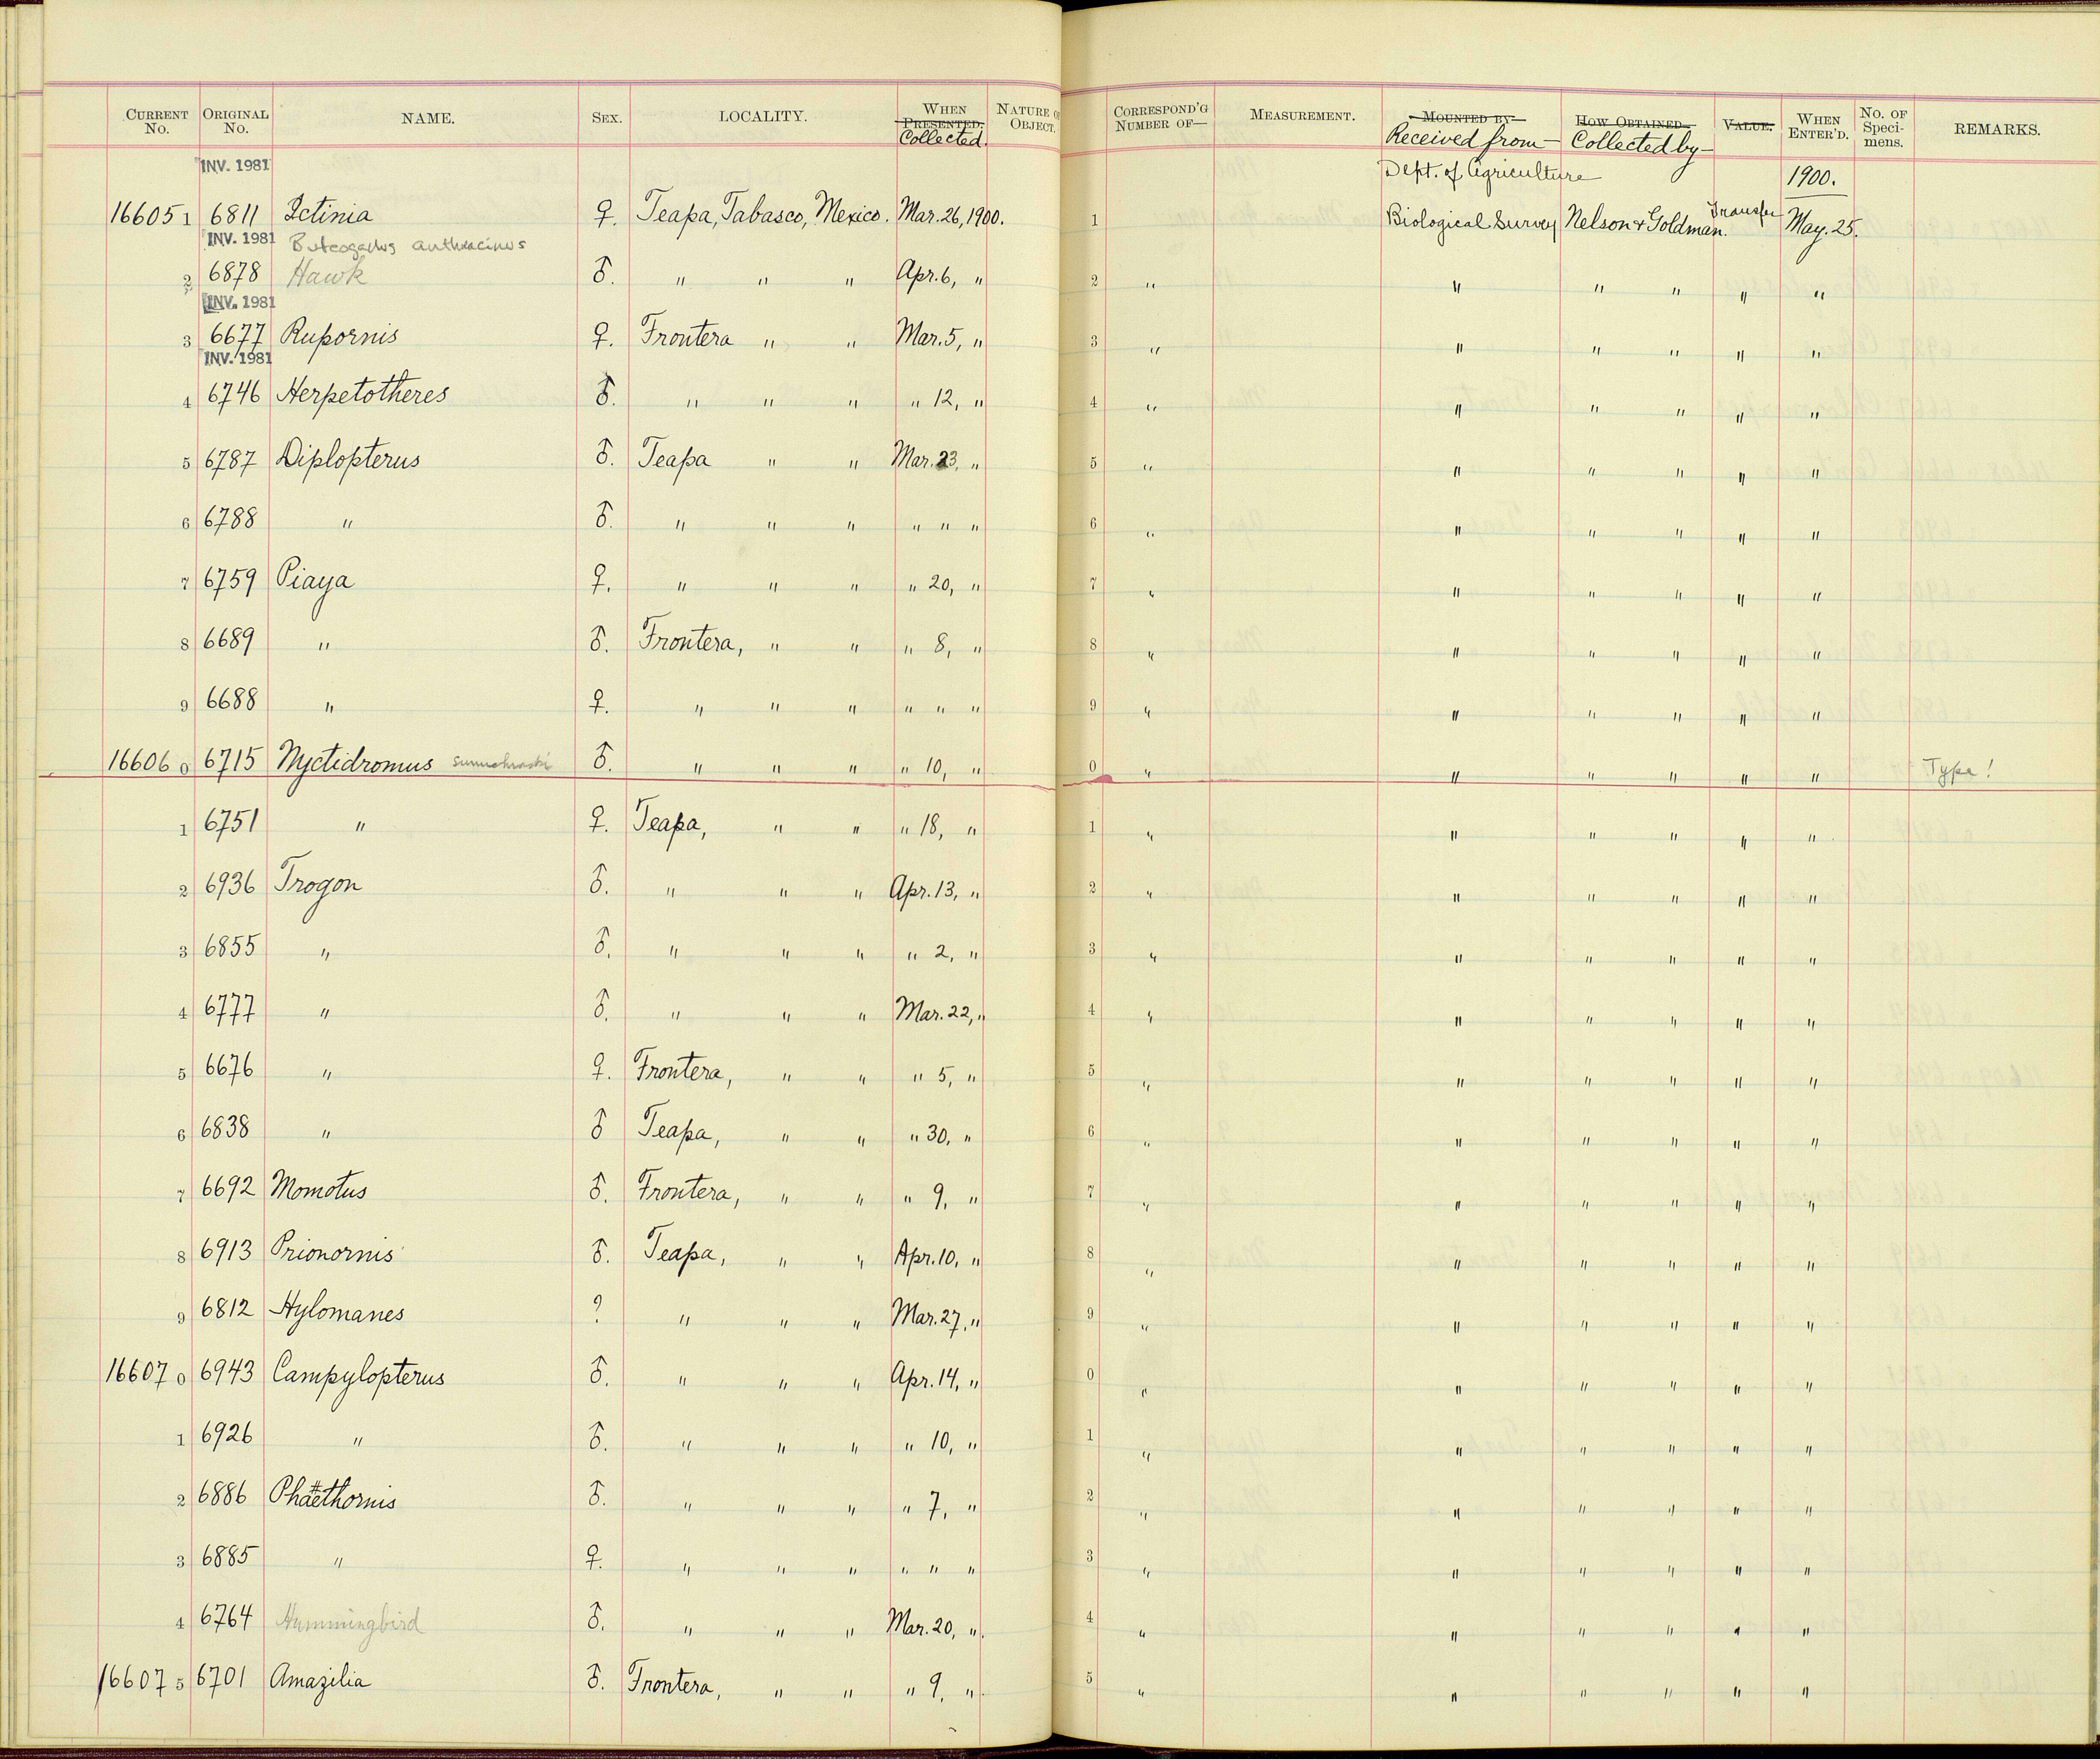 CURRENT No. ORIGINAL No. NAME. SEX. LOCALITY. WHEN PRESENTED. Collected. NATURE OF OBJECT. CORRESPOND'G NUMBER OF— MEASUREMENT. MOUNTED BY— Received from— HOW OBTAINED— Collected by— VALUE. WHEN ENTER'D. No. OF Speci- mens. REMARKS.
INV. 1981 Dept. of Agriculture 1900.
16605 1 6811 Ictinia ♀. Teapa, Tabasco, Mexico. Mar. 26, 1900. 1 Biological Survey Nelson & Goldman. Transfer May. 25.
INV. 1981 Buteogallus anthracinus
2 6878 Hawk ♂. " " " Apr. 6, " 2 " " " " " "
INV. 1981
3 6677 Rupornis ♀. Frontera " " Mar. 5, " 3 " " " " " "
INV. 1981
4 6746 Herpetotheres ♂. " " " " 12, " 4 " " " " " "
5 6787 Diplopterus ♂. Teapa " " Mar. 23, " 5 " " " " " "
6 6788 " ♂. " " " " " " 6 " " " " " "
7 6759 Piaya ♀. " " " " 20, " 7 " " " " " "
8 6689 " ♂. Frontera, " " " 8, " 8 " " " " " "
9 6688 " ♀. " " " " " " 9 " " " " " "
16606 0 6715 Nyctidromus sumichrasti ♂. " " " " 10, " 0 " " " " " " Type!
1 6751 " ♀. Teapa, " " " 18, " 1 " " " " " "
2 6936 Trogon ♂. " " " Apr. 13, " 2 " " " " " "
3 6855 " ♂. " " " " 2, " 3 " " " " " "
4 6777 " ♂. " " " Mar. 22, " 4 " " " " " "
5 6676 " ♀. Frontera, " " " 5, " 5 " " " " " "
6 6838 " ♂ Teapa, " " " 30, " 6 " " " " " "
7 6692 Momotus ♂. Frontera, " " " 9, " 7 " " " " " "
8 6913 Prionornis ♂. Teapa, " " Apr. 10, " 8 " " " " " "
9 6812 Hylomanes ? " " " Mar. 27, " 9 " " " " " "
16607 0 6943 Campylopterus ♂. " " " Apr. 14, " 0 " " " " " "
1 6926 " ♂. " " " " 10, " 1 " " " " " "
2 6886 Phaethornis ♂. " " " " 7, " 2 " " " " " "
3 6885 " ♀. " " " " " " 3 " " " " " "
4 6764 Hummingbird ♂. " " " Mar. 20, " 4 " " " " " "
16607 5 6701 Amazilia ♂. Frontera, " " " 9, " 5 " " " " " "